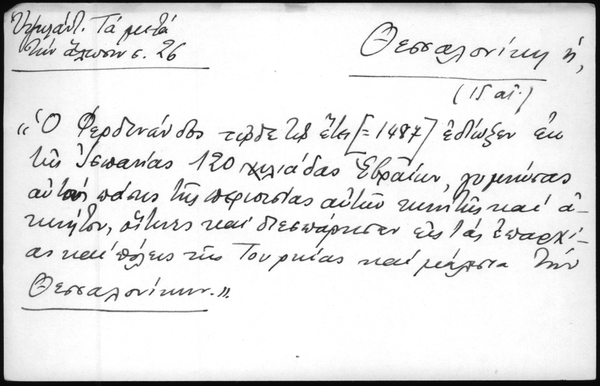 Ὑψηλάντ. Τά μετά
τήν ἅλωσιν σ. 26
Θεσσαλονίκη ἡ,
(15 αἰ.)
«Ὁ Φερδινάνδος τῷδε τῷ ἔτει [=1487] ἐδίωξεν ἐκ
τῆς Ἱσπανίας 120 χιλιάδας Ἑβραίων, γυμνώσας
αὐτούς πάσης τῆς περιουσίας αὐτῶν κινητῆς καί ἀ-
κινήτου, οἵτινες καί διεσπάρησαν εἰς τάς ἐπαρχί-
ας καί πόλεις τῆς Τουρκίας καί μάλιστα τήν
Θεσσαλονίκην.»